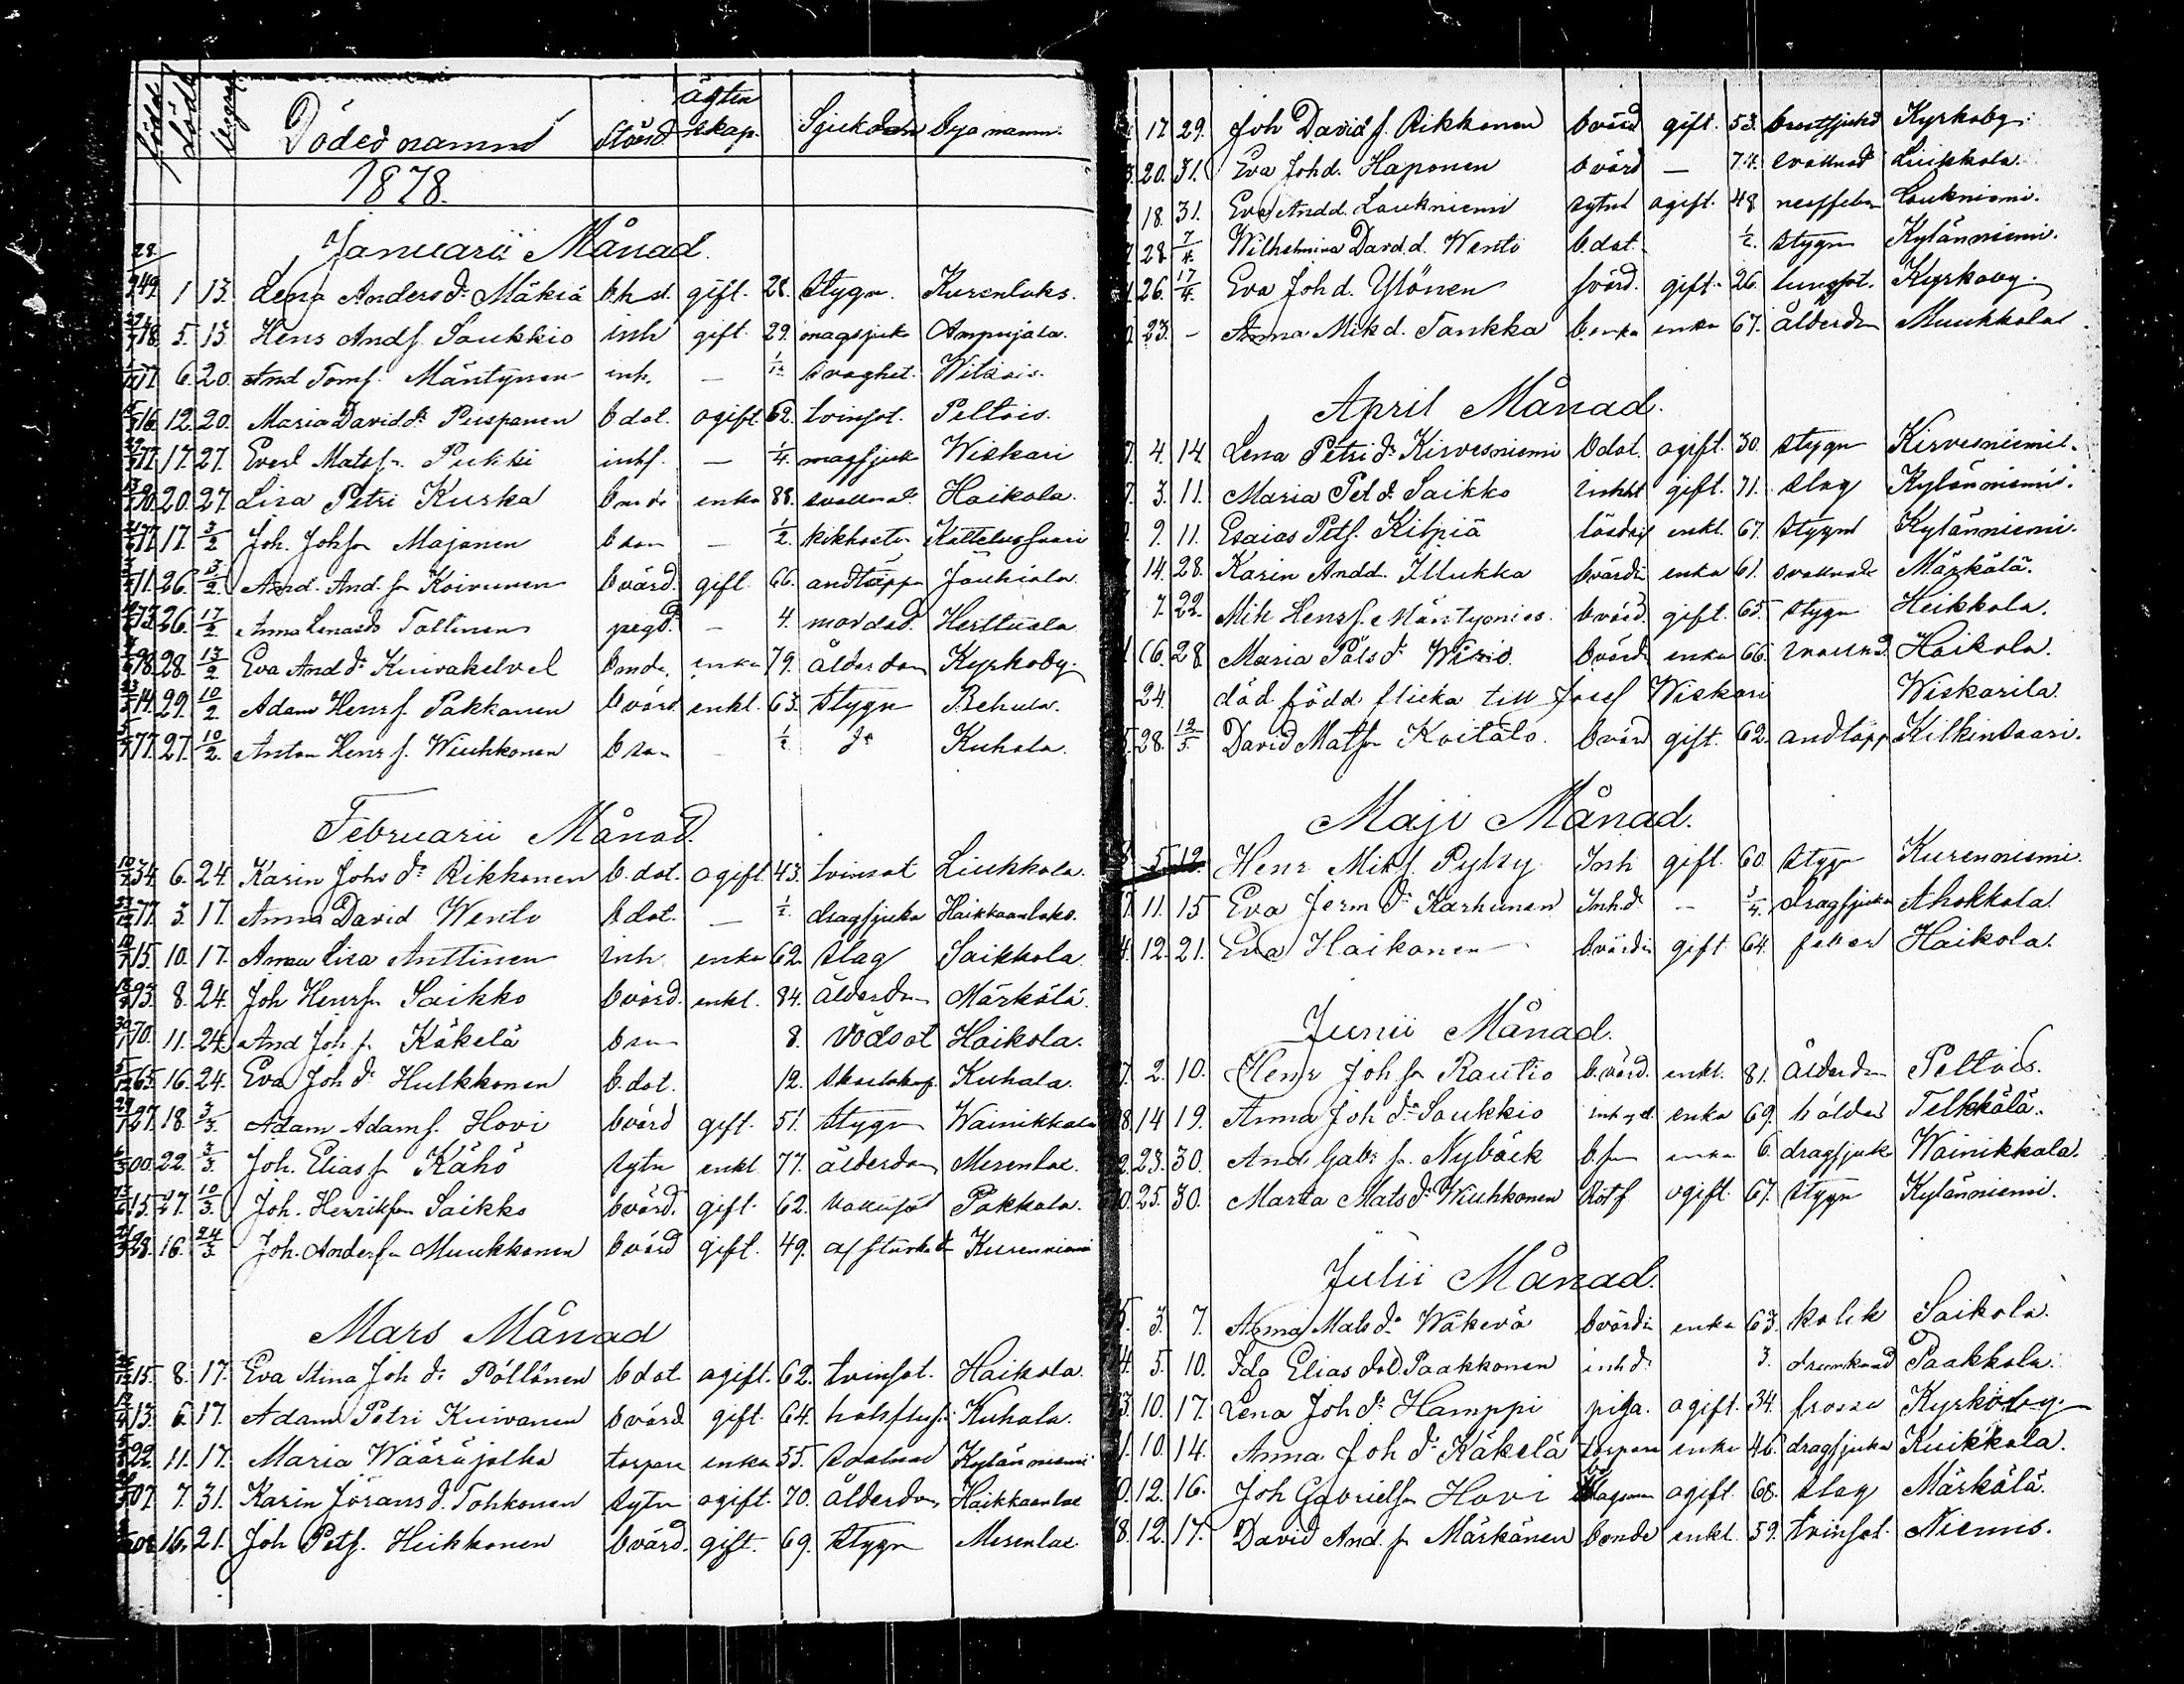 född död begrof Dödes namn Stånd ägten skap. Sjukdom Bya namn.
1878.
Januarii Månad.
49. 1 13. Lena Anders dr Mäkiä b.h.st. gift. 28. Stygn. Kurenlaks.
48. 5. 13. Hens Andf. Saukkio inh gift 29. magsjuk Ampujala.
77. 6. 20. And Tomf. Mäntynen inh. — svaghet. Witsois.
16. 12. 20. Maria David dr Puspanen b dot. ogift. 62. tvinsot. Peltois.
77. 17. 27. Everl Matsf. Pukki inhf. — 1/4. magsjuk Wiskari
90. 20. 27. Lisa Petri Kurka enka 88. svallnad. Haikola.
77. 17. 3/2 Joh. Johfn Majanen b son — 1/2. kikhosta Kattelussaari
11. 26. 3/2. And. And. fn Koivunen bvärd. gift. 66. andtäppa Jaukiala.
73. 26. 17/2 Anna Lenas dr Taltinen pigd. — 4. mordad. Herttuala
98. 28. 13/2 Eva And dr Kuivakelvel enka 79. ålderdom Kyrkoby.
14. 29. 10/2. Adam Henrf. Pakkanen bvärd enkl. 63. Stygn Rehula.
77. 27. 10/2. Anton Henrf. Wiuhkonen b son — 1/2 Kuhala.
Februarii Månad.
34. 6. 24. Karin Johs dr Rikkonen b. dot. ogift 43. tvinsot Liukkola.
77. 3. 17. Anna David Wento b dot. — 1/2. dragsjuka Haikkaanlaks.
15. 10. 17. Anna Lisa Anttinen inh enka 62. slag Saikkola.
93. 8. 24. Joh Henrfn Saikko bvärd. enkl. 84. Ålderdom Märkälä.
70. 11. 24. And Joh fn Käkelä b son 8. rödsot Haikola.
65. 16. 24. Eva Joh dr Hulkkonen b. dot. 12. Kuhala.
27. 18. 3/3. Adam Adamf. Hovi bvärd gift. 51. Stygn Wainikkala
00. 22. 3/3. Joh. Elias fn Kähö sytn enkl 77. ålderdom Mesenlax.
15. 27. 10/3. Joh. Henrikfn Saikko bvärd. gift. 62. Pakkala.
28. 16. 24/3 Joh. Anderfn Muukkonen bvärd gift. 49. Kurenniemi
Mars Månad
15. 8. 17. Eva Stina Joh dr Pöllönen b dot ogift. 62. tvinsot. Haikola.
13. 6. 17. Adam Petri Kuivanen bvärd gift. 64. Kuhala.
22. 11. 17. Maria Wääräjalka torpare enka 55. Kylänniemi
07. 7. 31. Karin Jörans d. Tohkonen sytn ogift. 70. Ålderdom Haikkaanlax
08. 16. 21. Joh Petf. Heikkonen bvärd. gift. 69. Stygn Mesenlax.
17 29. Joh David f. Rikkonen bvärd gift. 53. brostsjukd Kyrkoby.
20. 31. Eva Joh d. Haponen bvärd — 74. svallnad Liukkola.
18. 31. Eva Andd. Laukniemi sytn ogift. 48 Laukniemi.
28. 7/4. Wilhelmina David d. Wento b. dot. 1/2. stygn Kylänniemi.
26. 17/4. Eva Joh d. Ylönen bvärd. gift. 26. lungsot. Kyrkoby.
23. – Anna Mik d. Tankka b. enka enka 67. ålderdom Muukkola.
April Månad.
4. 14. Lena Petri dr Kirvesniemi b dot. ogift. 30. stygn Kirvesniemis.
3. 11. Maria Pet dr Saikko inhst gift. 71. slag Kylänniemi.
9. 11. Esaias Petf. Kilpiä enkl. 67. stygn Kylänniemi.
14. 28. Karin Andd. Illukka bvärdi enka 61. svallnad Märkälä.
7. 22. Mik Henrf. Mäntynies bvärd. gift. 65. stygn Heikkola.
16. 28 Maria Påls dr Wirio. bvärd enka 66. svallnad. Haikola.
24. död född flicka till Josef Wiskari Wiskarila.
28. 12/5. David Matfn Koitalo. bvärd gift. 62. andtäpp Kilkinsaari.
Maji Månad.
5. 12. Henr Mikf. Pylsy Inh gift. 60 stygn Kurenniemi.
11. 15 Eva Jerm dr Karhunen Inhd. — 3/4. dragsjuka Ahokkala.
12. 21. Eva Haikonen bvärdi gift. 64. feber Haikola.
Junii Månad.
2. 10. Henr Joh fn Rautio b.värd. enkl. 81. Ålderdom Peltois.
14 19. Anna Joh dr Saukkio enka 69. Telkkälä.
23. 30. And Gabr fn Nybäck b.fn 6. dragsjuk Wainikkala.
25. 30. Marta Mats dr Wiuhkonen Rotf ogift. 67. stygn Kylänniemi.
Julii Månad.
3. 7. Anna Mats dr Wäkevä bvärdi enka 63. kolik Saikola.
5. 10. Ida Elias dot. Paakkonen inhd. 3. drunknad Paakkola.
10. 17. Lena Joh dr Hamppi piga. ogift. 34. frossa Kyrkoby.
10. 14. Anna Joh dr Käkelä torpare enka 46. dragsjuka Kuikkala.
12. 16. Joh Gabrielfn Hovi ogift 68. slag Märkälä.
12. 17. David And. fn Märkänen bonde enkl. 59. tvinsot. Niemis.